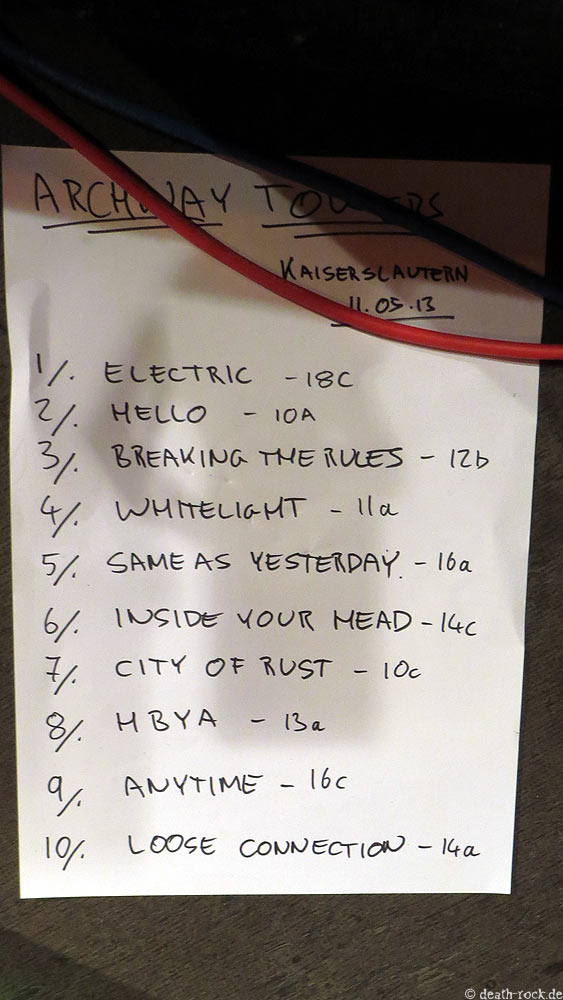 ARCHWAY TOWERS
KAISERSLAUTERN
11.05.13
1/. ELECTRIC - 18C
2/. HELLO - 10A
3/. BREAKING THE RULES - 12b
4/. WHITELIGHT - 11a
5/. SAME AS YESTERDAY. - 16a
6/. INSIDE YOUR HEAD - 14c
7/. CITY OF RUST - 10c
8/. HBYA - 13a
9/. ANYTIME - 16c
10/. LOOSE CONNECTION - 14a
© death-rock.de